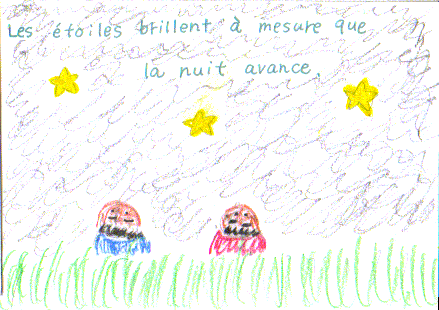 Les étoiles brillent à mesure que
la nuit avance.